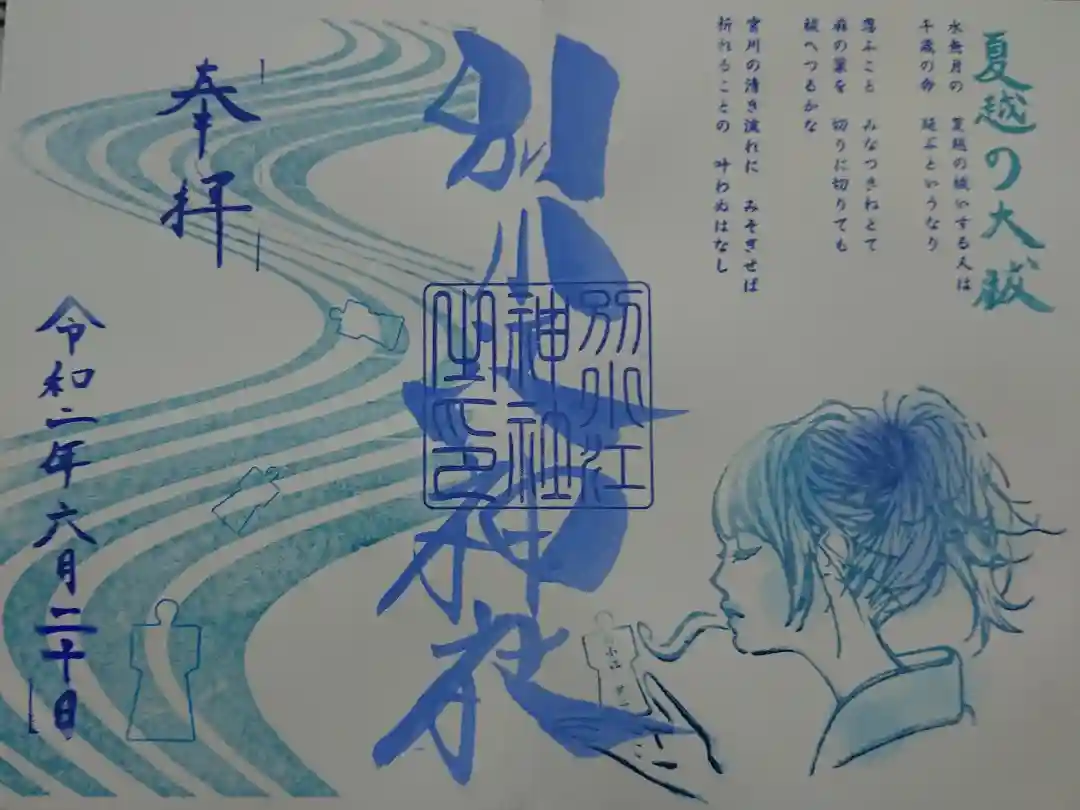 夏越の大祓
水無月の 夏越の祓いする人は
千歳の命 延ぶというなり
思ふこと みなつきねとて
麻の葉を 切りに切りても
祓へつるかな
宮川の清き流れに みそぎせば
祈れることの 叶わぬはなし
別小江神社
別小江
神社
之印
奉拝
令和二年六月二十日